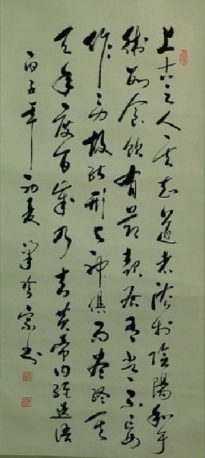 上古之人其知道者法於陰陽和于
術數食飲有節起居有常不妄
作勞故能形與神俱而盡終其
天年度百歲乃去黃帝內經選語
丙子年初夏